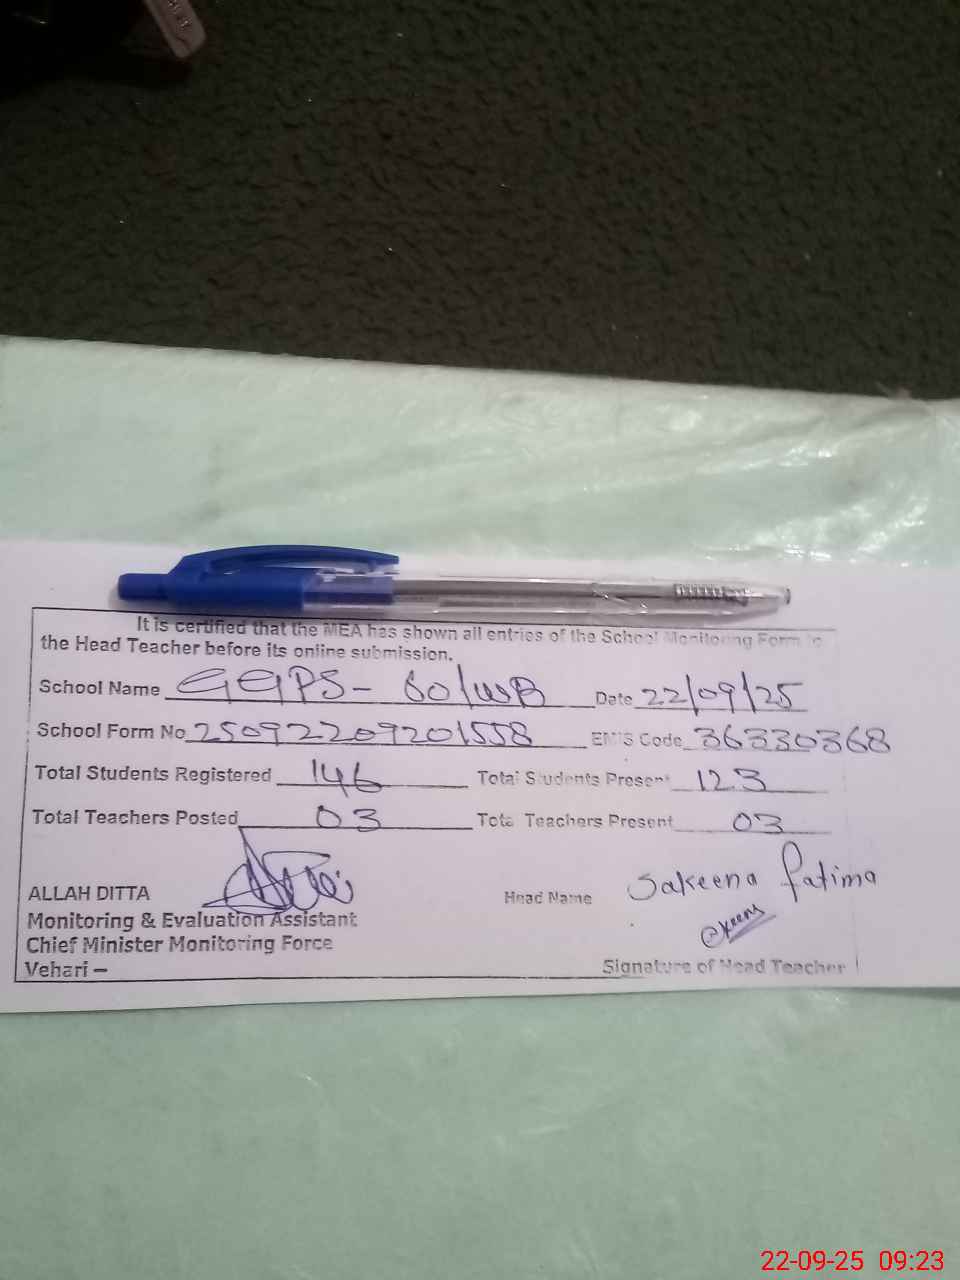 It is certified that the MEA has shown all entries of the School Monitoring Form to
the Head Teacher before its online submission.
School Name GGPS- 60/WB Date 22/09/25
School Form No 25092209201558 EMIS Code 36330368
Total Students Registered 146 Total Students Present 123
Total Teachers Posted 03 Total Teachers Present 03
ALLAH DITTA Head Name Sakeena Fatima
Monitoring & Evaluation Assistant
Chief Minister Monitoring Force
Vehari – Signature of Head Teacher
22-09-25 09:23